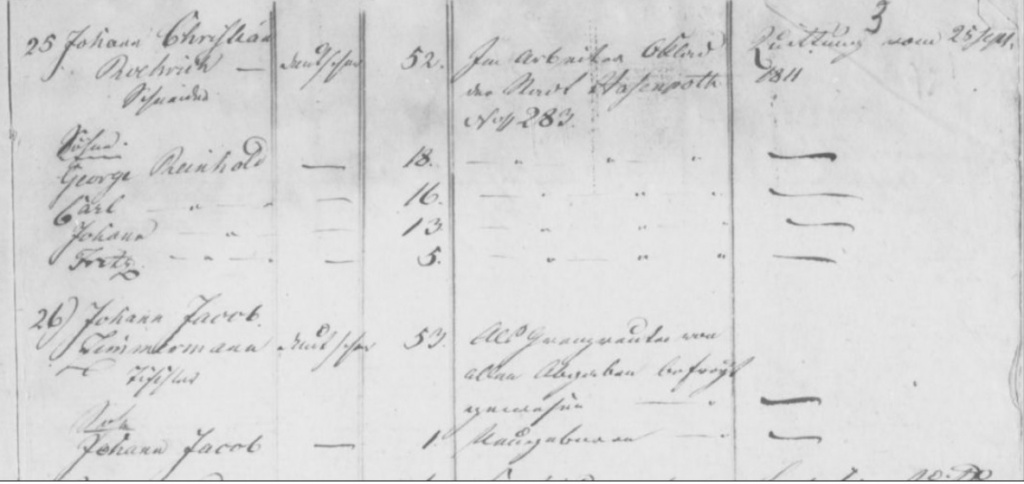 3
25 Johann Christian deutscher 52. Im Arbeiter Oklad Quittung vom 25 Sept.
Roehrich — der Stadt Hasenpoth 1811
Schneider No 283.
Söhne:
George Reinhold — 18. — " " " —
Carl — " — — 16. — " " " —
Johann — " — — 13. — " " " —
Fritz — " — — 5. — " " " —
26) Johann Jacob
Zimmermann deutscher 53. Als Grenzreuter von
Tischler allen Abgaben befreyt
gewesen — " —
Sohn
Johann Jacob — 1. Neugeboren — " —